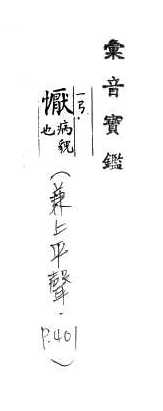 彙音寶鑑
一ㄢ·
懨病貌也
(兼上平聲·P.401)